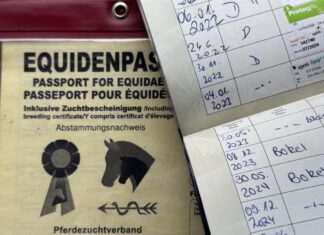 EQUIDENPASS
PASSPORT FOR EQUIDAE
PASSEPORT POUR ÉQUIDÉS
Inklusive Zuchtbescheinigung /Including
breeding certificate/Y compris certificat d'élevage
Abstammungsnachweis
A
Pferdezuchtverband
06.01.
2022 D
24.6.
2022 D
30.11.
2022 D
04.01.
2023
30.05.
2023
08.12.
2023 Bokel
30.05.
2024 Bokel
09.12.
2024
ProteqFlu